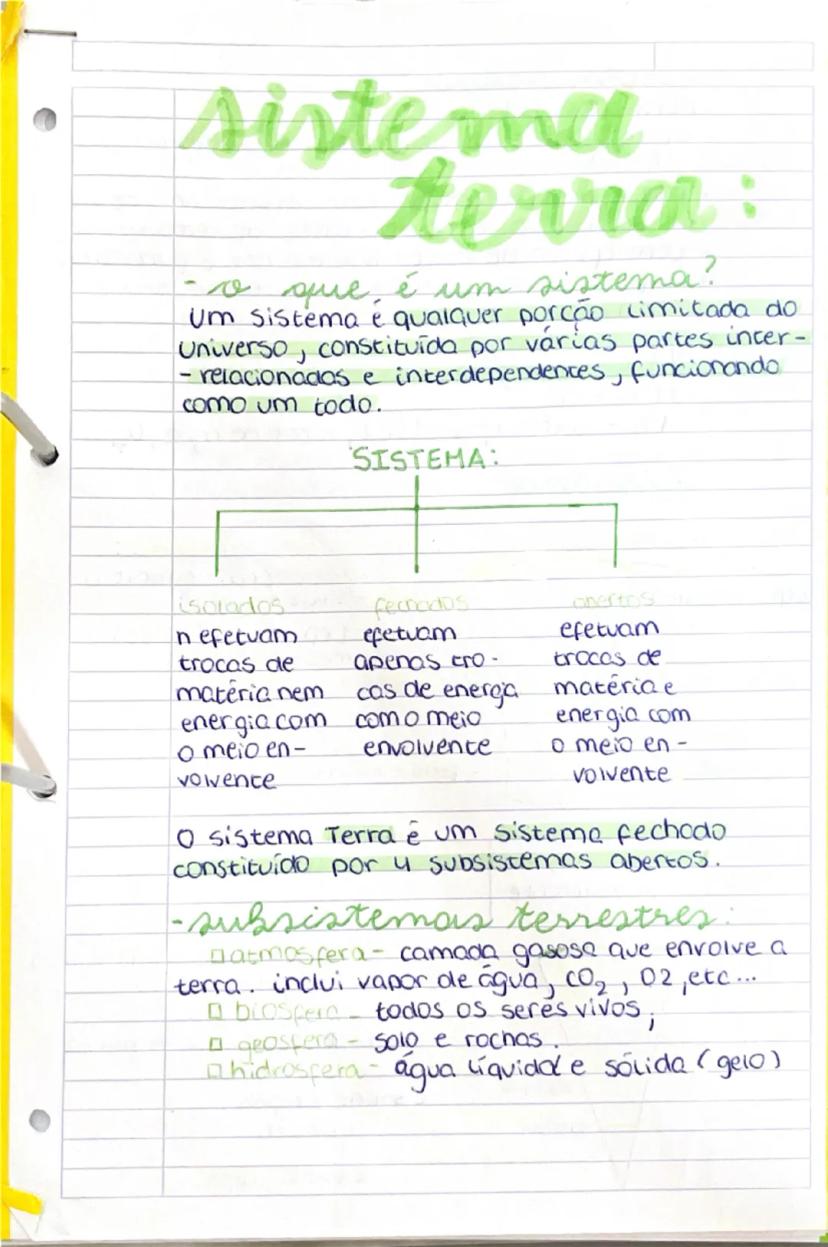 sistema
terra:
- o que é um sistema?
Um sistema é qualquer porção limitada do
universo, constituída por várias partes inter-
- relacionados e interdependentes, funcionando
como um todo.
SISTEMA:
isolados fechados abertos
n efetuam efetuam efetuam
trocas de apenas tro- trocas de
matéria nem cas de energia matéria e
energia com com o meio energia com
o meio en- envolvente o meio en-
volvente volvente
O sistema Terra é um sistema fechado
constituído por 4 subsistemas abertos.
- subsistemas terrestres:
□ atmosfera - camada gasosa que envolve a
terra. inclui vapor de água, CO₂, O2, etc...
□ biosfera - todos os seres vivos;
□ geosfera - solo e rochas.
□ hidrosfera - água líquida e sólida (gelo)